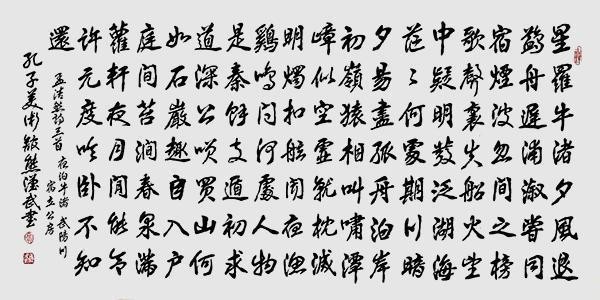 星羅牛渚夕風退
鷁舟遲浦漵嘗同
宿煙波忽間之榜
歌聲裏失船火望
中疑明發泛湖海
茫〻何處期川暗
夕陽盡孤舟泊岸
初嶺猿相叫嘯潭
嶂似空虛就枕滅
明燭扣舷聞夜漁
鷄鳴問何處人物
是秦餘支遁初求
道深公笑買山何
如石巖趣自入戶
庭間苔澗春泉滿
蘿軒夜月閒能令
許元度吟臥不知
還
孟浩然詩三首 夜泊牛渚 武陽川
宿立公房
孔子美術館熊武書